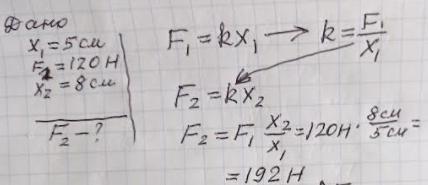 Дано
x₁ = 5 см
F₁ = 120 Н
x₂ = 8 см
F₂ - ?
F₁ = kx₁ → k = F₁/x₁
F₂ = kx₂
F₂ = F₁ x₂/x₁ = 120 Н · 8 см/5 см =
= 192 Н